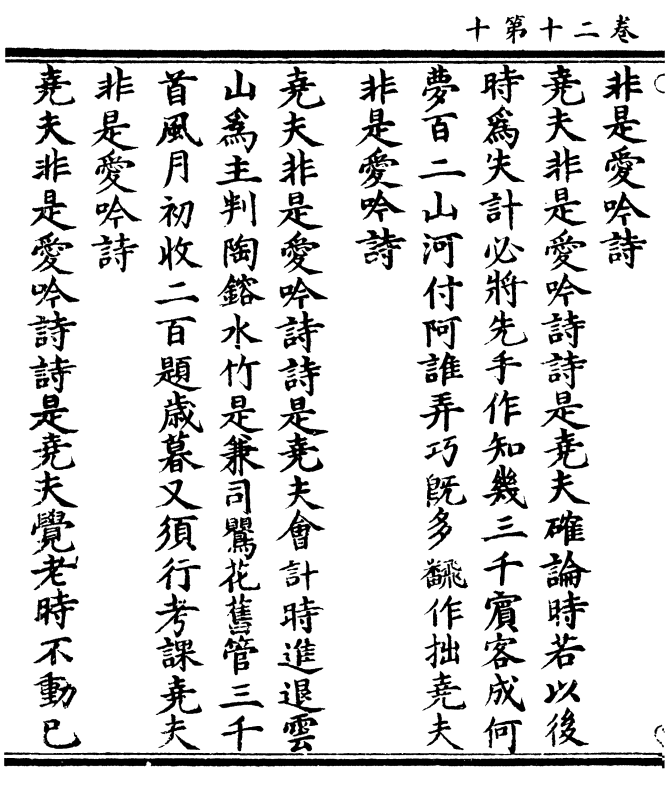 卷二十第十
非是愛吟詩
堯夫非是愛吟詩詩是堯夫確論時若以後
時爲失計必將先手作知幾三千賔客成何
夢百二山河付阿誰弄巧旣多飜作拙堯夫
非是愛吟詩
堯夫非是愛吟詩詩是堯夫會計時進退雲
山爲主判陶鎔水竹是兼司鸎花舊管三千
首風月初收二百題歲暮又須行考課堯夫
非是愛吟詩
堯夫非是愛吟詩詩是堯夫覺老時不動已